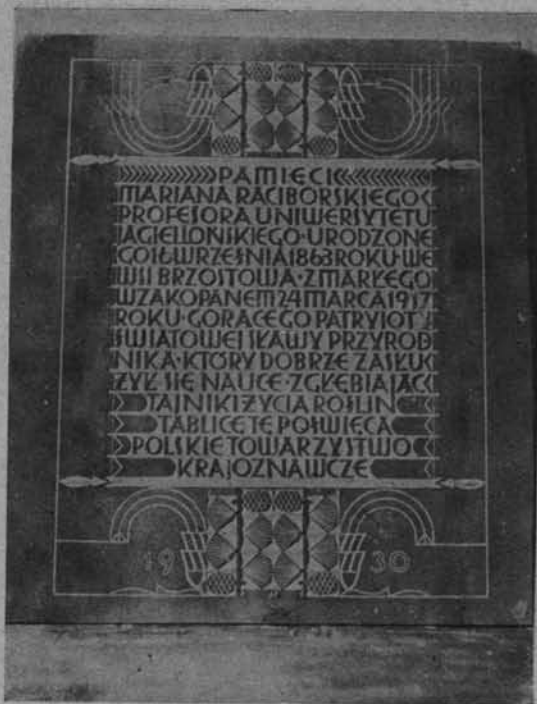 PAMIĘCI
MARIANA RACIBORSKIEGO
PROFESORA UNIWERSYTETU
JAGIELLOŃSKIEGO·URODZONE
GO 16 WRZEŚNIA 1863 ROKU·WE
WSI BRZOSTOWA·ZMARŁEGO
W ZAKOPANEM 24 MARCA 1917
ROKU·GORĄCEGO PATRYJOTY
ŚWIATOWEJ SŁAWY PRZYROD
NIKA·KTÓRY DOBRZE ZASŁU
ŻYŁ SIĘ NAUCE·ZGŁĘBIAJĄC
TAJNIKI ŻYCIA ROŚLIN
TABLICĘ TĘ POŚWIĘCA
POLSKIE TOWARZYSTWO
KRAJOZNAWCZE
19 30